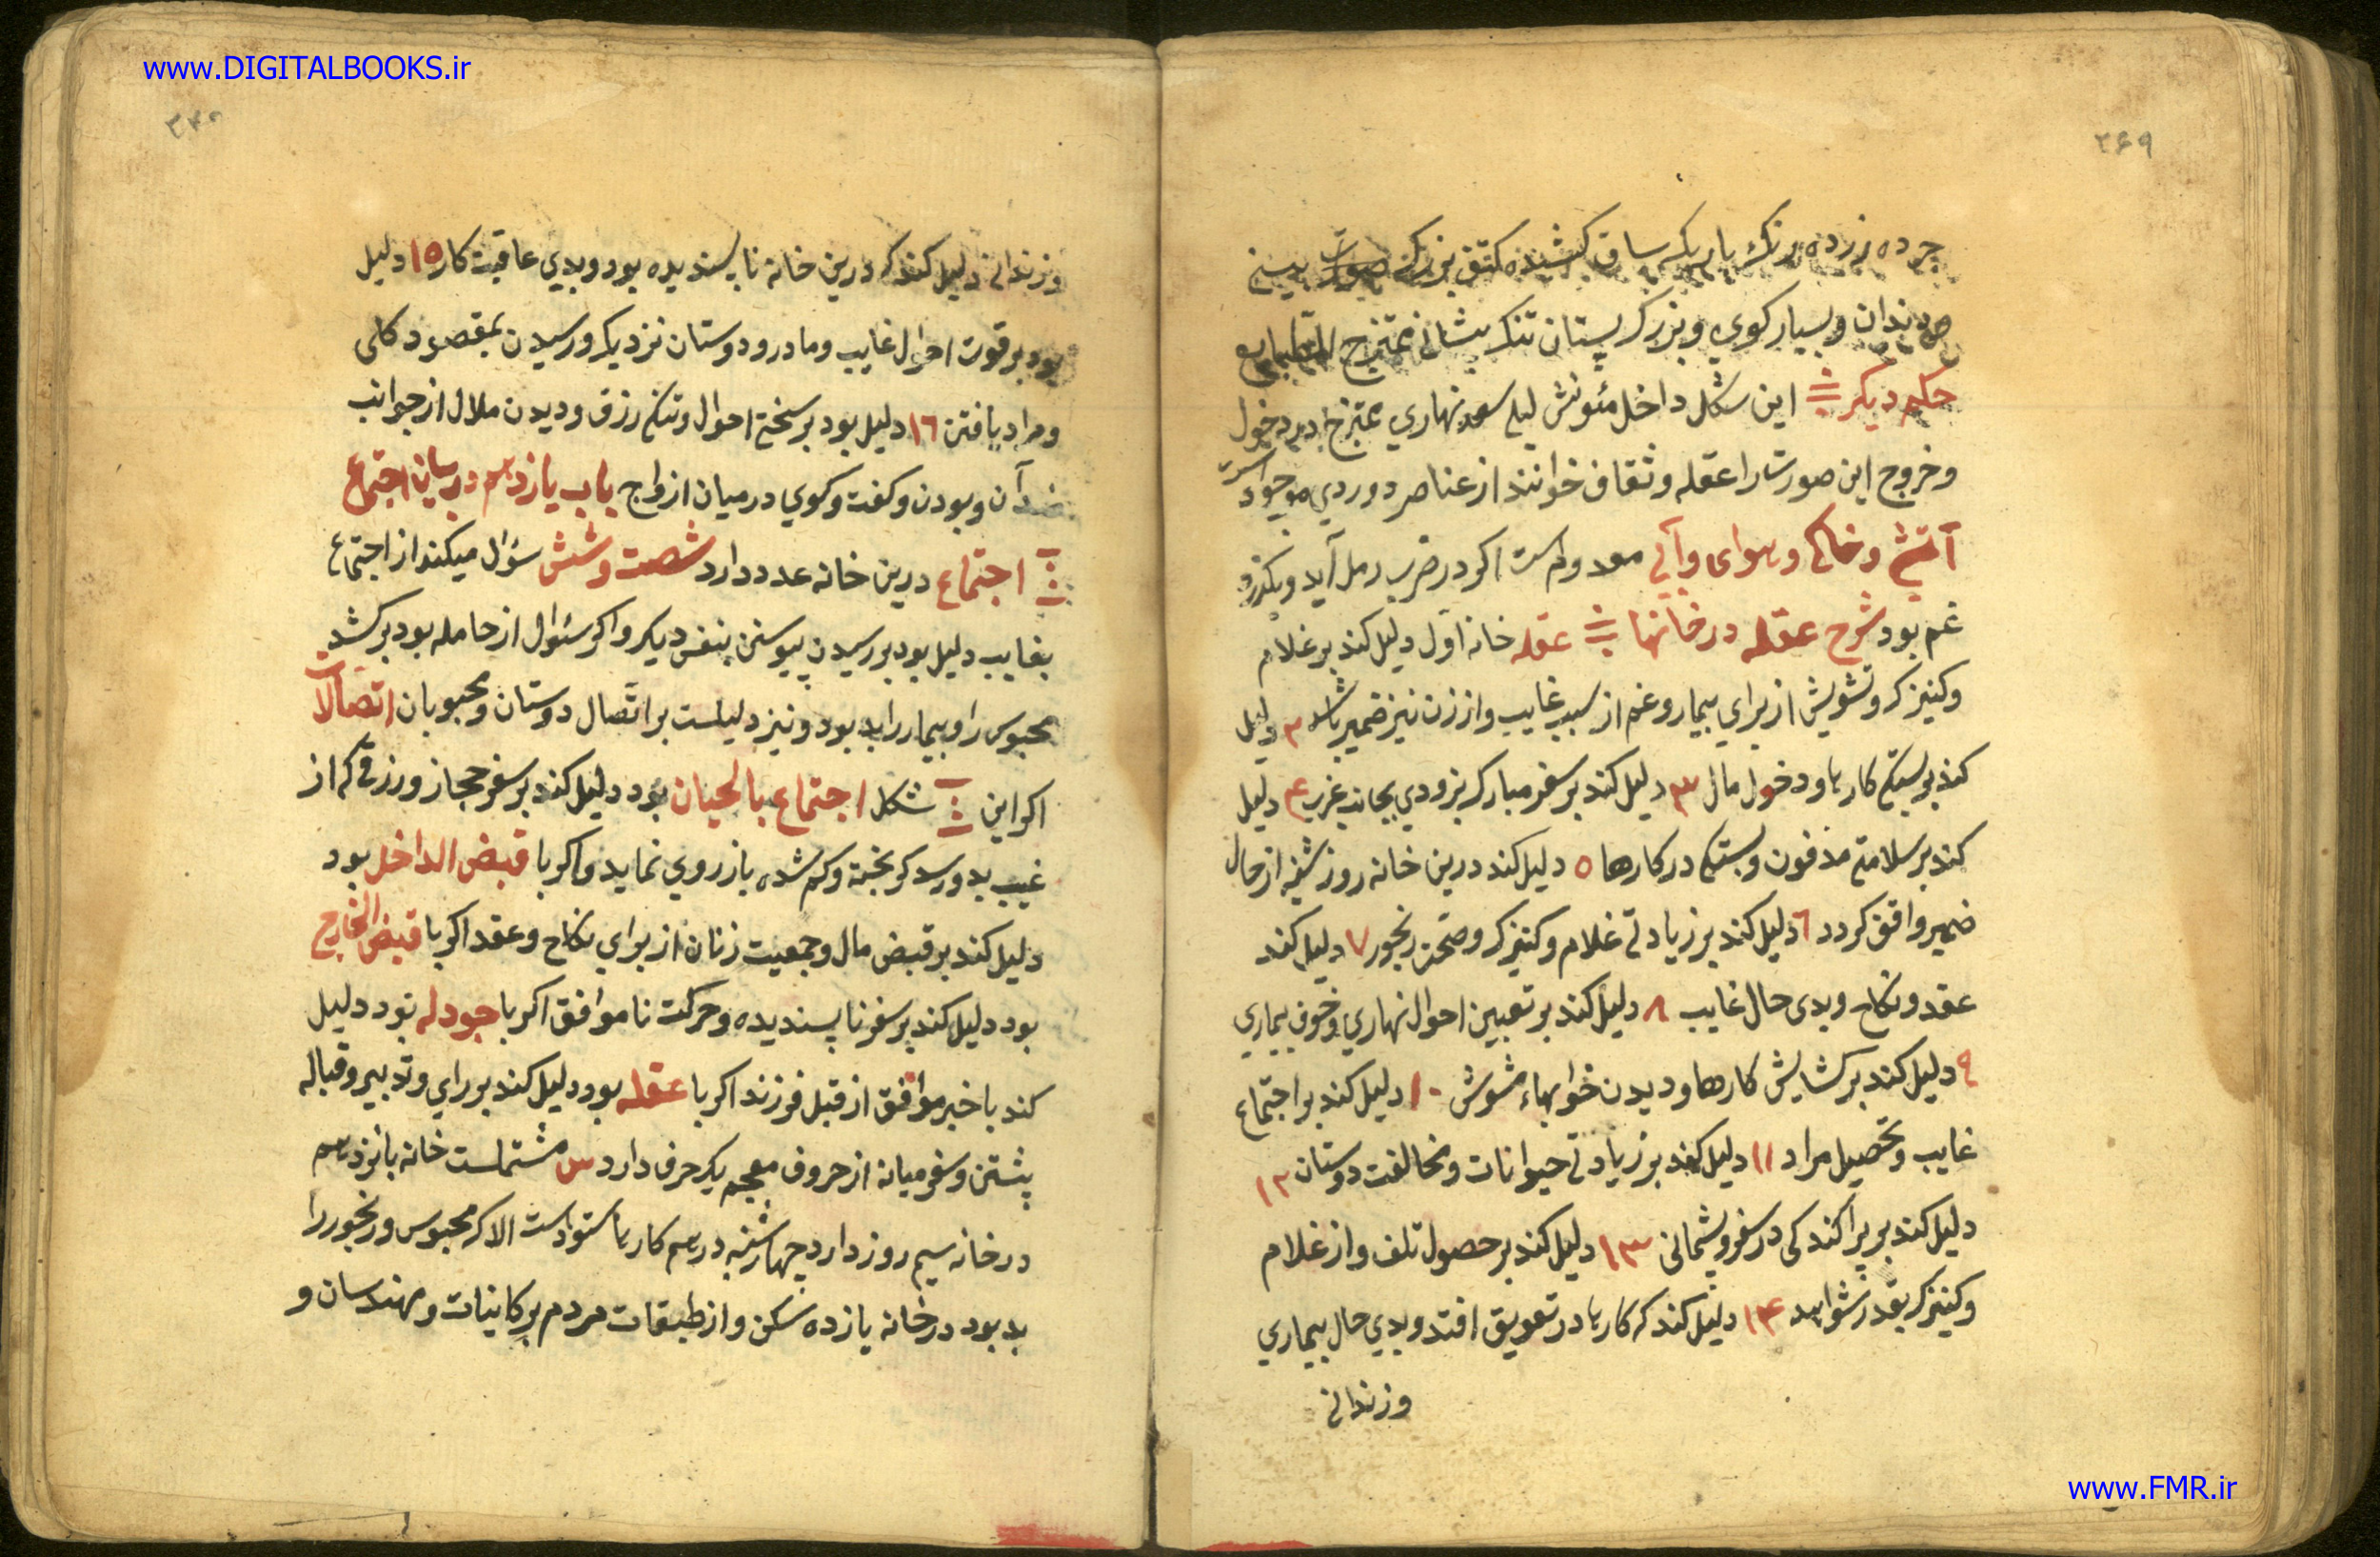 www.DIGITALBOOKS.ir
۳۶۹
چرده زرده رنک باریک ساق کشیده کتف بزرک صورت بینی
دندان و بسیار کوی و بزرک پستان تنک پیشانی ممتزج الطبایع
حکم دیکر این شکل داخل مئونث لیلی سعد نهاری ممتزج در دخول
و خروج این صورت را عقله و ثقاف خوانند از عناصر دوردی موجود است
آتشی و خاکی و هوای و آبی معدوم است اکر در ضرب رمل آید و بکذرد
غم بود شرح عقله در خانها عقله خانه اول دلیل کند بر غلام
و کنیزک و تشویش از برای بیمار و غم از سبب غایب و از زن نیز ضمیر باشد ۲ دلیل
کند بر بستکی کارها و دخول مال ۳ دلیل کند بر سفر مبارک بزودی بجانب غرب ۴ دلیل
کند بر سلامتی مدفون و بستکی در کارها ۵ دلیل کند درین خانه روز شنبه از حال
ضمیر واقف کردد ٦ دلیل کند بر زیادتی غلام و کنیزک و صحت رنجور ۷ دلیل کند
عقد و نکاح و بدی حال غایب ۸ دلیل کند بر تعیین احوال نهاری و خوف بیماری
۹ دلیل کند بر کشایش کارها و دیدن خوابهاء مشوش ۱۰ دلیل کند بر اجتماع
غایب و تحصیل مراد ۱۱ دلیل کند بر زیادتی حیوانات و مخالفت دوستان ۱۲
دلیل کند بر پراکندکی در سفر و پشمانی ۱۳ دلیل کند بر حصول تلف و از غلام
و کنیزک بقدر تشواید ۱۴ دلیل کند که کارها در تعویق افتد و بدی حال بیماری
و زندانی
www.FMR.ir
۳۷۰
و زندانی دلیل کند که درین خانه ناپسندیده بود و بدی عاقبت کار ۱۵ دلیل
بود بر قوت احوال غایب و مادر و دوستان نزدیک و رسیدن بمقصود کلی
و مراد یافتن ۱٦ دلیل بود بر سختی احوال و تنکی رزق و دیدن ملال از جوانب
ضد آن و بودن و کفت و کوی در میان ازواج باب یازدهم در بیان اجتماع
اجتماع درین خانه عدد دارد شصت و شش سؤال میکند از اجتماع
بغایب دلیل بود بر رسیدن پیوستن بنفس دیکر و اکر سئوال از حامله بود بر کشد
محبوس را و بیمار را بد بود و نیز دلیلست بر اتصال دوستان و محبوبان اتصالات
اکر این شکل اجتماع بالحیان بود دلیل کند بر سفر حجاز و رزقی که از
غیب بدو رسد کریخته و کم شده باز روی نماید و اکر با قبض الداخل بود
دلیل کند بر قبض مال و جمعیت زنان از برای نکاح و عقد اکر با قبض الخارج
بود دلیل کند بر سفر ناپسندیده و حرکت ناموافق اکر با جودله بود دلیل
کند با خبر موافق از قبل فرزند اکر با عقله بود دلیل کند بر رای و تدبیر و قباله
پشتن و سفر میانه از حروف معجم یک حرف دارد س مشتملست خانه پانزدهم
در خانه سیم روز دارد چهارشنبه در همه کارها ستوداست الا که محبوس و رنجور را
بد بود در خانه یازده سکن و از طبقات مردم بر کاینات و مهندسان و